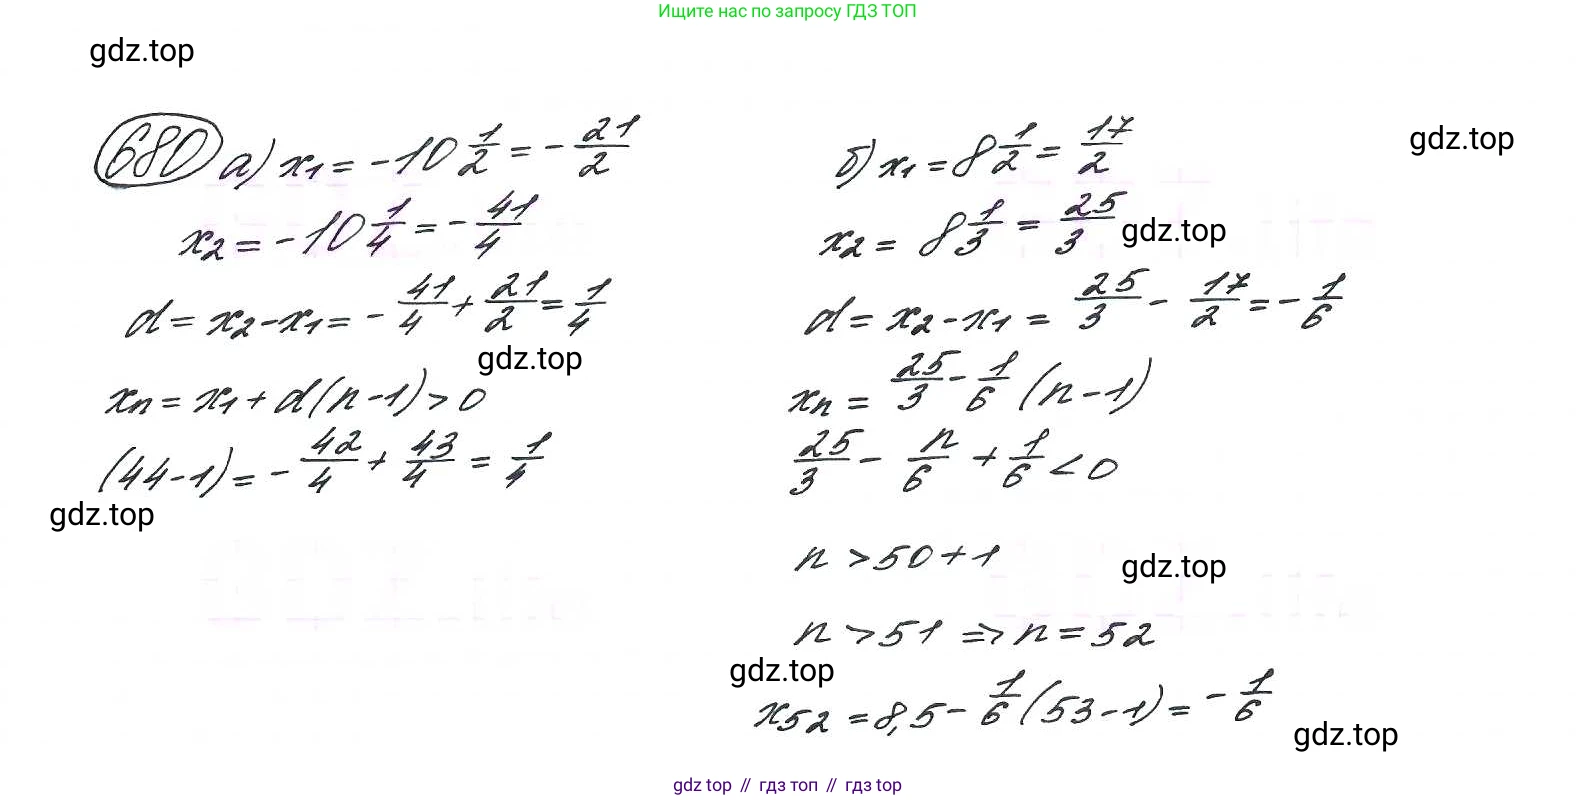 Ищите нас по запросу ГДЗ ТОП
gdz.top
680 а) x₁ = -10 1/2 = - 21/2
x₂ = -10 1/4 = - 41/4
d = x₂ - x₁ = - 41/4 + 21/2 = 1/4
gdz.top
xₙ = x₁ + d(n-1) > 0
(44-1) = - 42/4 + 43/4 = 1/4
gdz.top
gdz.top
б) x₁ = 8 1/2 = 17/2
x₂ = 8 1/3 = 25/3
gdz.top
d = x₂ - x₁ = 25/3 - 17/2 = - 1/6
xₙ = 25/3 - 1/6 (n-1)
25/3 - n/6 + 1/6 < 0
n > 50 + 1
gdz.top
n > 51 ⇒ n = 52
gdz.top
x₅₂ = 8,5 - 1/6 (53-1) = - 1/6
gdz.top
gdz top // гдз топ // gdz top